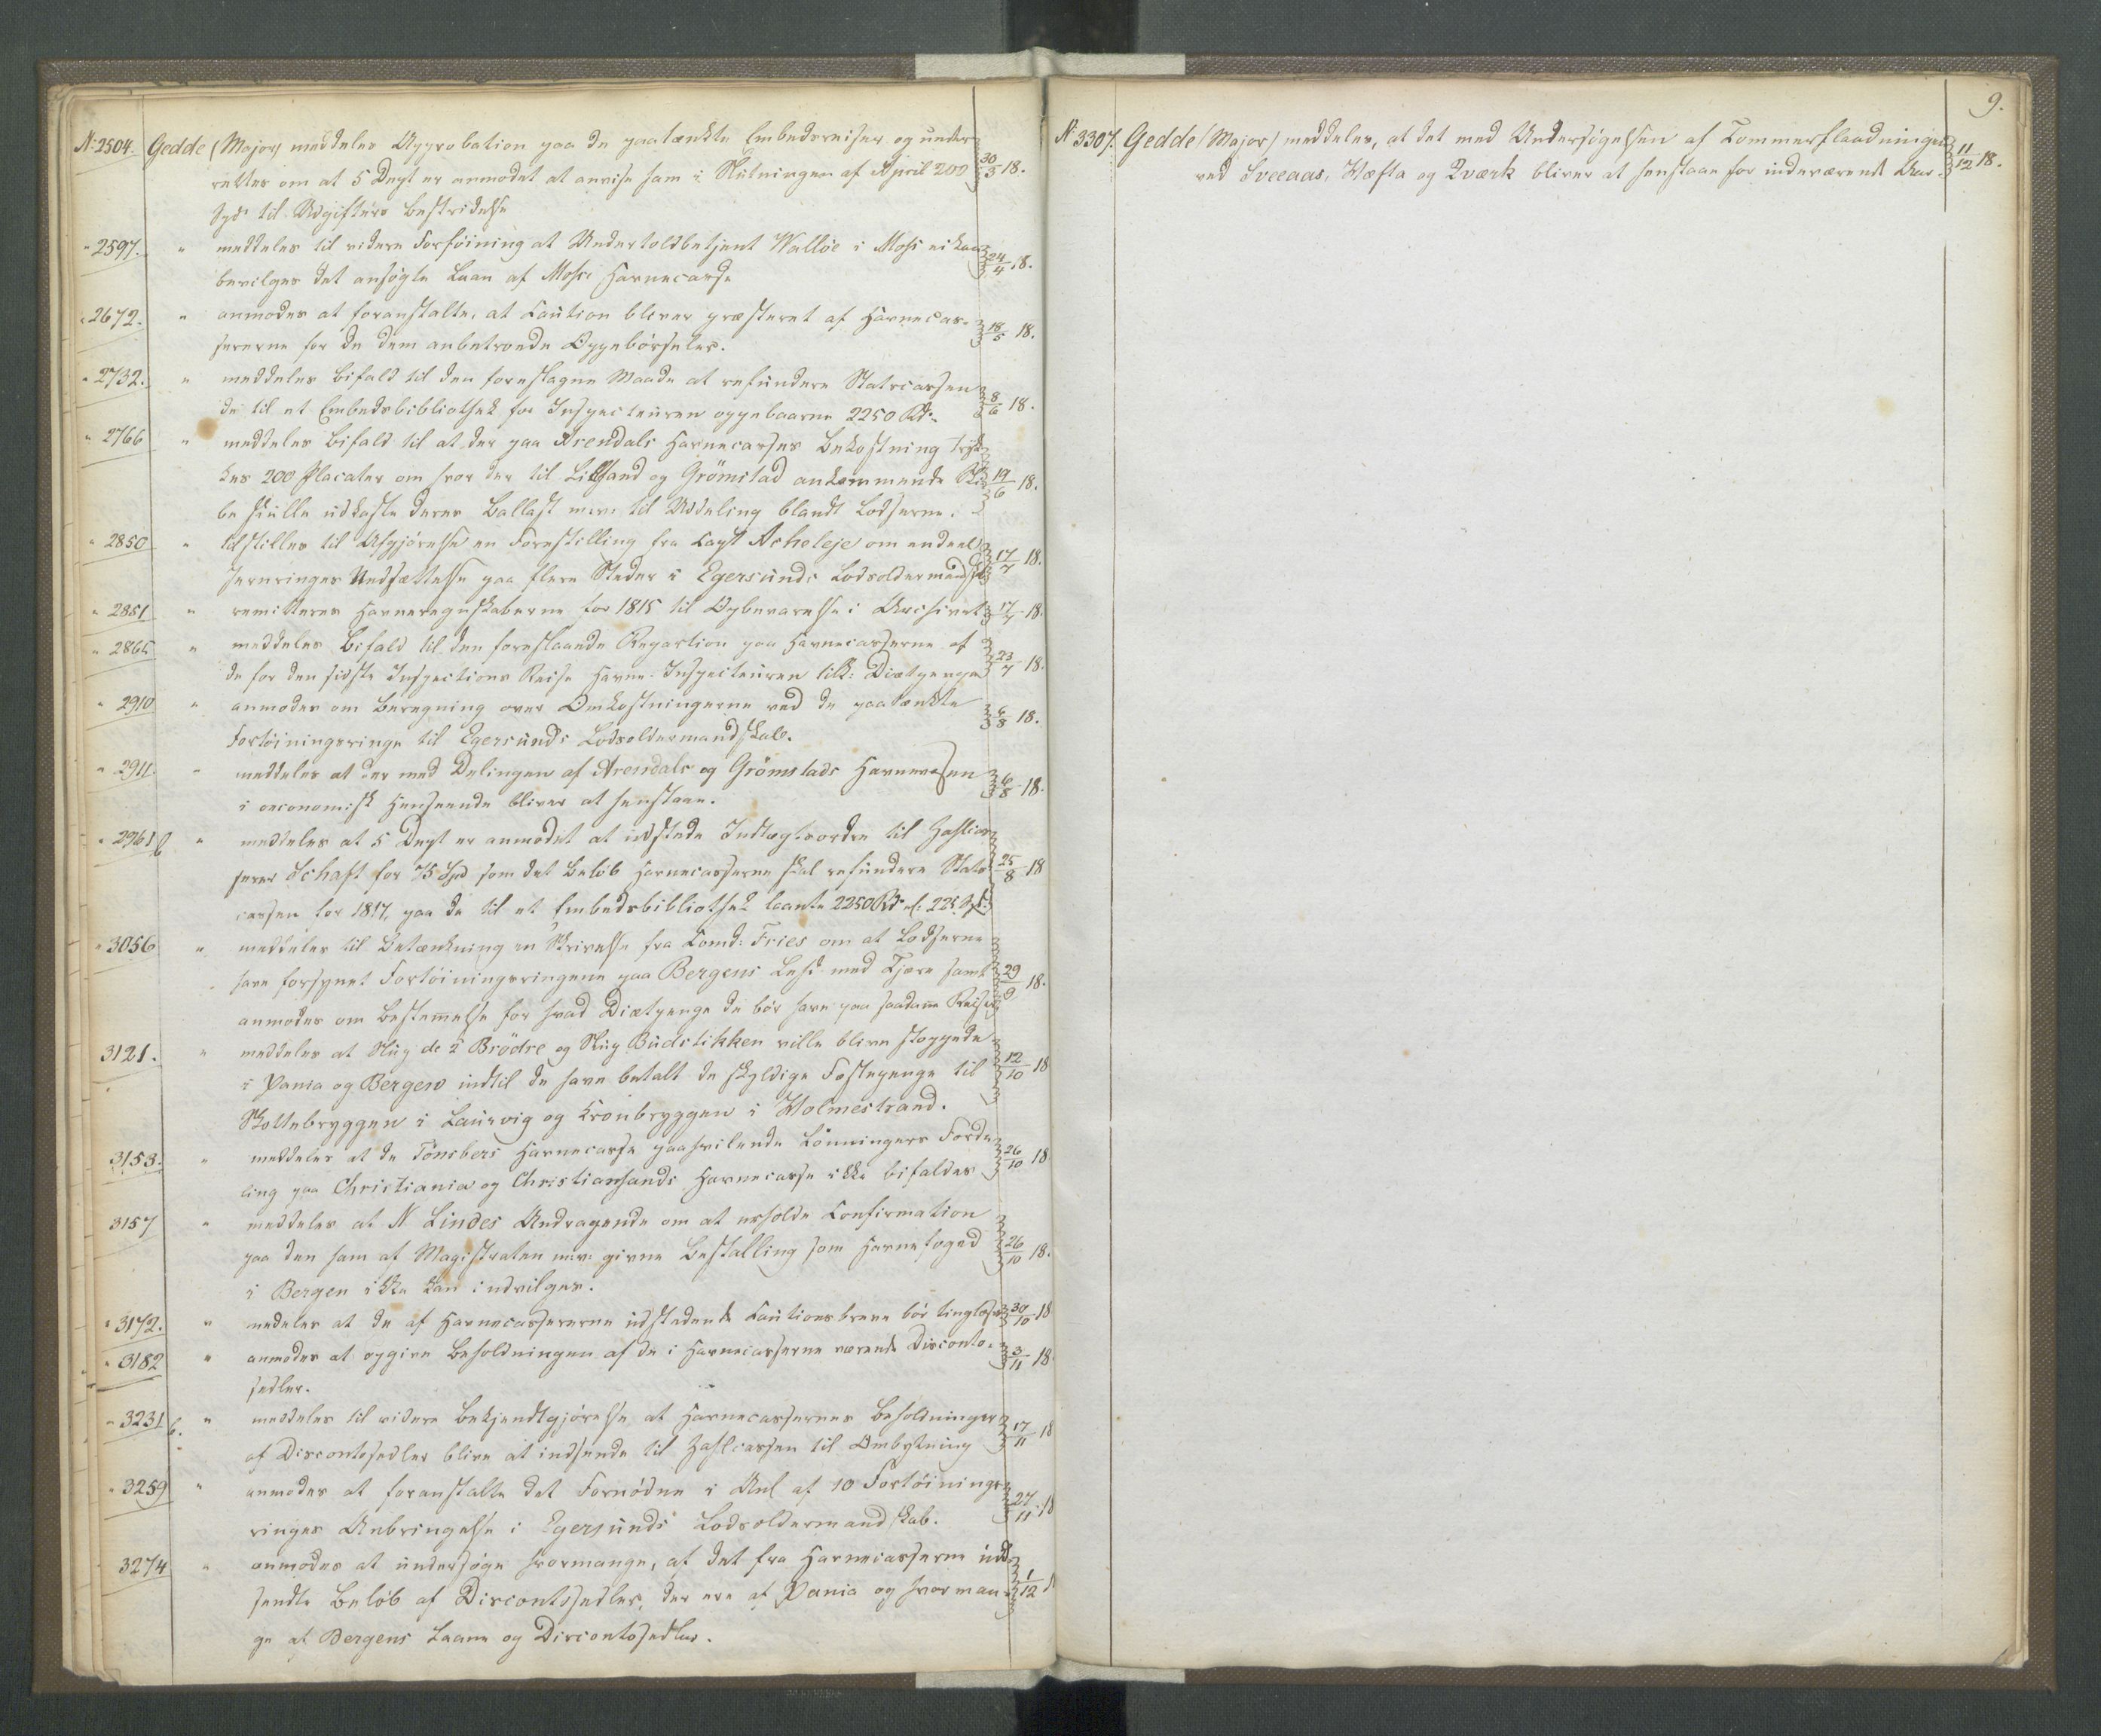 N: 2504. Gedde (Major) meddeles Approbation paa de paatænkte Embedsreiser og under
rettes om at 5 Dept er anmodet at anvise ham i Slutningen af April 200 30/3 18.
Spd til Udgifters Bestridelse
" 2597. " meddeles til videre Forføining at Undertoldbetjent Walløe i Moss ei kan
bevilges det ansøgte Laan af Moss Havnecasse 24/4 18.
" 2672. " anmodes at foranstalte, at Caution bliver præsteret af Havnecas-
sererne for de dem anbetroede Oppebørseler. 18/5 18.
" 2732. " meddeles Bifald til den foreslagne Maade at refundere Statscassen
de til et Embedsbibliothek for Inspecteuren oppebaarne 2250 Rd. 8/6 18.
" 2766 " meddeles Bifald til at der paa Arendals Havnecasses Bekostning tryk-
kes 200 Placater om hvor der til Lillesand og Grömstad ankommende Ski 19/6 18.
be skulle udkaste deres Ballast m: v: til Uddeling blandt Lodserne.
" 2850 " tilstilles til Afgjørelse en Forestilling fra Capt Acheleje om endeel
Jernringes Nedsættelse paa flere Steder i Egersunds Lodsoldermandsk: 17/7 18.
" 2851 " remitteres Havneregnskaberne for 1815 til Opbevarelse i Archivet 17/7 18.
" 2865 " meddeles Bifald til den foreslaaede Repartion paa Havnecasserne af
de for den sidste Inspections Reise Havne-Inspecteuren tilk: Diætpenge 23/7 18.
" 2910 " anmodes om Beregning over Omkostningerne ved de paatænkte
Fortöiningsringe til Egersunds Lodsoldermandskab. 6/8 18.
" 2911. " meddeles at der med Delingen af Arendals og Grömstads Havnevæsen
i oeconomisk Henseende bliver at henstaae. 6/8 18.
" 2961 b " meddeles at 5 Dept er anmodet at udstede Indtægtsordre til Zahlcas
serer Schaft for 75 Spd som det Beløb Havnecasserne skal refundere Stats 25/8 18
cassen for 1817, paa de til et Embedsbibliothek laante 2250 Rd
" 3056 " meddeles til Betænkning en Skrivelse fra Comd: Fries om at Lodserne
have forsynet Fortöiningsringene paa Bergens Led med Tjære samt 29/9 18.
anmodes om Bestemmelse for hvad Diætpenge de bør have paa saadanne Reiser
3121. " meddeles at Slup de 2 Brödre og Slup Budstikken ville blive stoppede
i Xania og Bergen indtil de have betalt de skyldige Fæstepenge til 12/10 18
Skottebryggen i Laurvig og Kronbryggen i Holmestrand.
3153. " meddeles at de Tönsbers Havnecasse paahvilende Lönningers Forde
ling paa Christiania og Christiansands Havnecasse ikke bifaldes 26/10 18
3157 " meddeles at N Lindes Andragende om at erholde Confirmation
paa den ham af Magistraten m: v: givne Bestalling som Havnefoged 26/10 18.
i Bergen ikke kan indvilges.
" 3172. " meddeles at de af Havnecassererne udstedende Cautionsbreve bör tinglæses 30/10 18
" 3182 " anmodes at opgive Beholdningen af de i Havnecasserne værende Disconto- 3/11 18
sedler.
" 3231 b. " meddeles til videre Bekjendtgjørelse at Havnecassernes Beholdninger
af Discontosedler blive at indsende til Zahlcassen til Ombytning 17/11 18
" 3259 " anmodes at foranstalte det Fornødne i Anl af 10 Fortöinings
ringes Anbringelse i Egersunds Lodsoldermandskab. 27/11 18
3274 " anmodes at undersøge hvormange, af det fra Havnecasserne ind
sendte Beløb af Discontosedler, der ere af Xania og hvorman 1/12
ge af Bergens Laane og Discontosedler.
9.
N 3307. Gedde (Major) meddeles, at det med Undersøgelsen af Tommerflaadningen
ved Sveeaas, Hæfta og Qværk bliver at henstaae for indeværende Aar. 11/12 18.